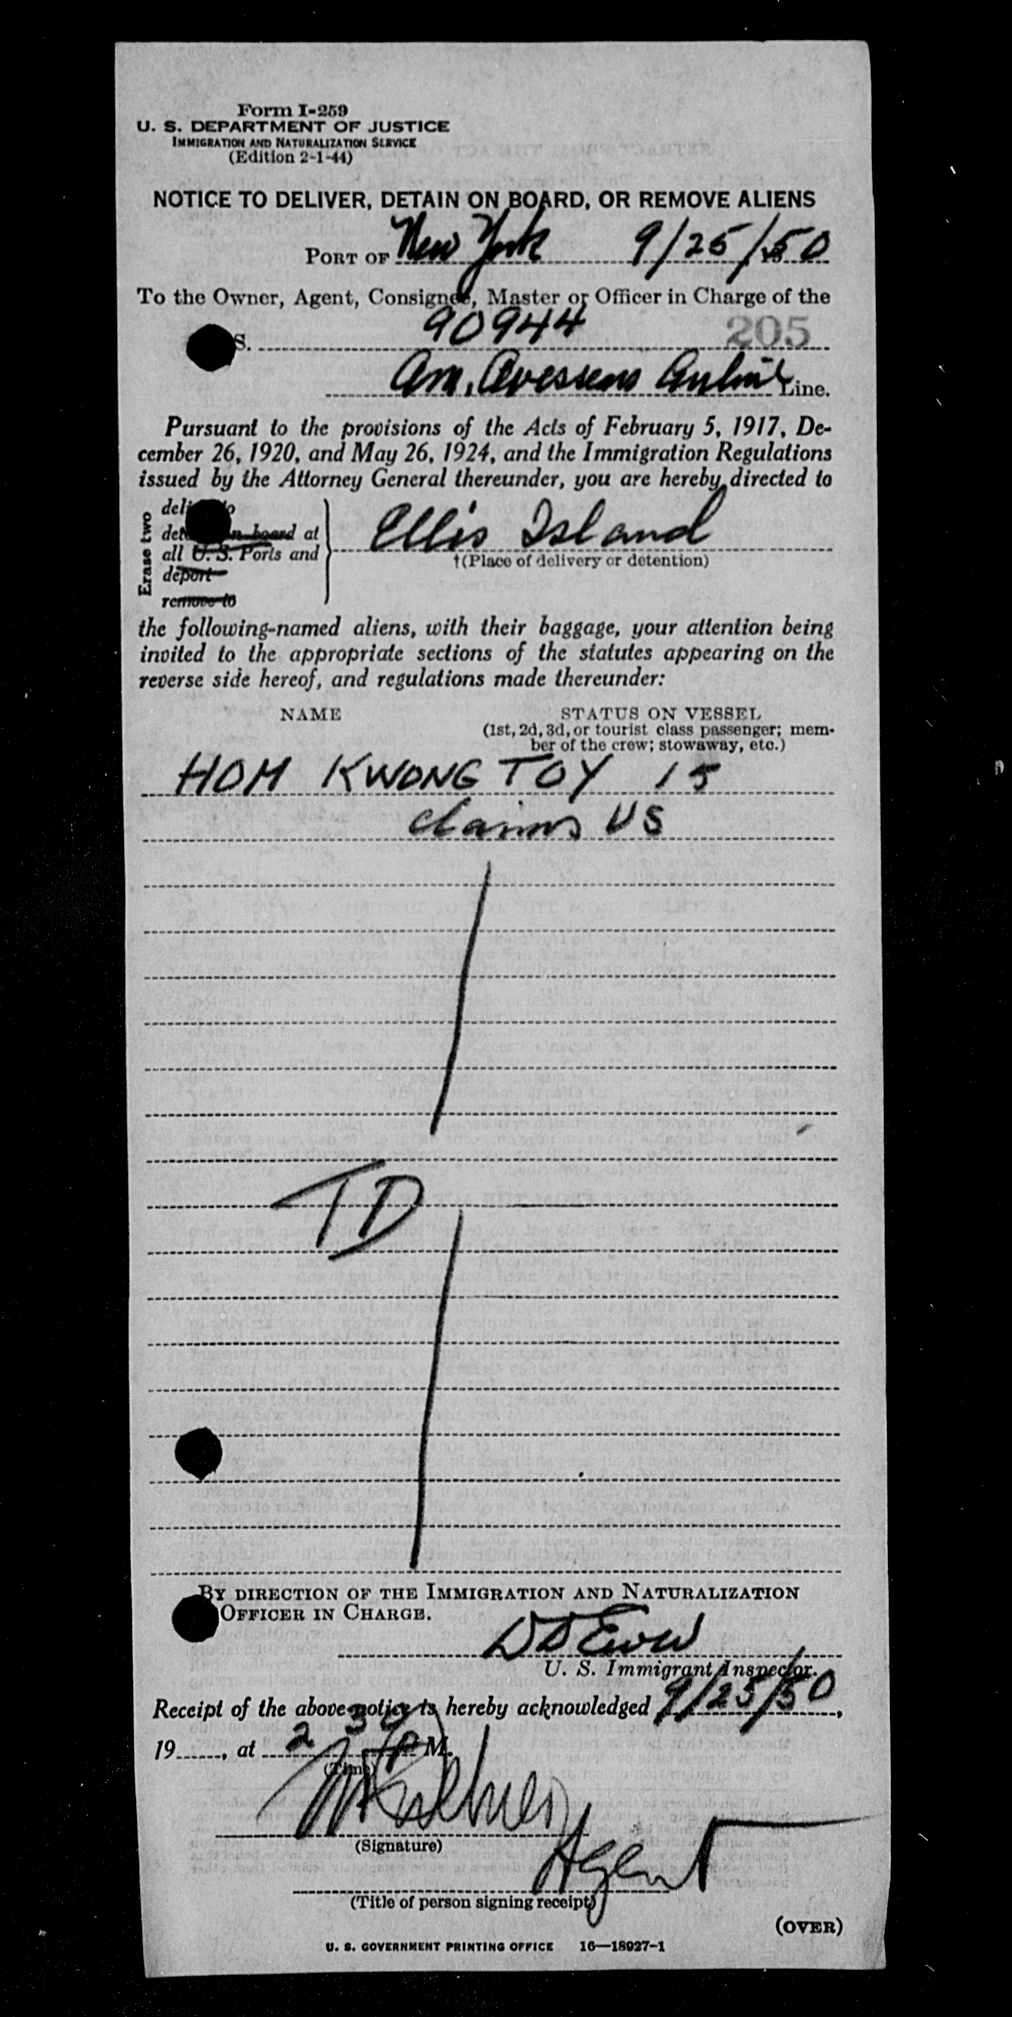 Form I-259
U. S. DEPARTMENT OF JUSTICE
IMMIGRATION AND NATURALIZATION SERVICE
(Edition 2-1-44)
NOTICE TO DELIVER, DETAIN ON BOARD, OR REMOVE ALIENS
PORT OF New York 9/25/50
To the Owner, Agent, Consignee, Master or Officer in Charge of the
S. 90944 205
Am. Overseas Airline Line.
Pursuant to the provisions of the Acts of February 5, 1917, De-
cember 26, 1920, and May 26, 1924, and the Immigration Regulations
issued by the Attorney General thereunder, you are hereby directed to
Erase two
deliver to
detain on board at
all U. S. Ports and
deport
remove to
Ellis Island
†(Place of delivery or detention)
the following-named aliens, with their baggage, your attention being
invited to the appropriate sections of the statutes appearing on the
reverse side hereof, and regulations made thereunder:
NAME STATUS ON VESSEL
(1st, 2d, 3d, or tourist class passenger; mem-
ber of the crew; stowaway, etc.)
HOM KWONG TOY 15
claims US
TD
BY DIRECTION OF THE IMMIGRATION AND NATURALIZATION
OFFICER IN CHARGE.
U. S. Immigrant Inspector.
Receipt of the above notice is hereby acknowledged 9/25/50,
19......, at 2 30 P M.
(Time)
(Signature)
Agent
(Title of person signing receipt)
(OVER)
U. S. GOVERNMENT PRINTING OFFICE 16—18027-1